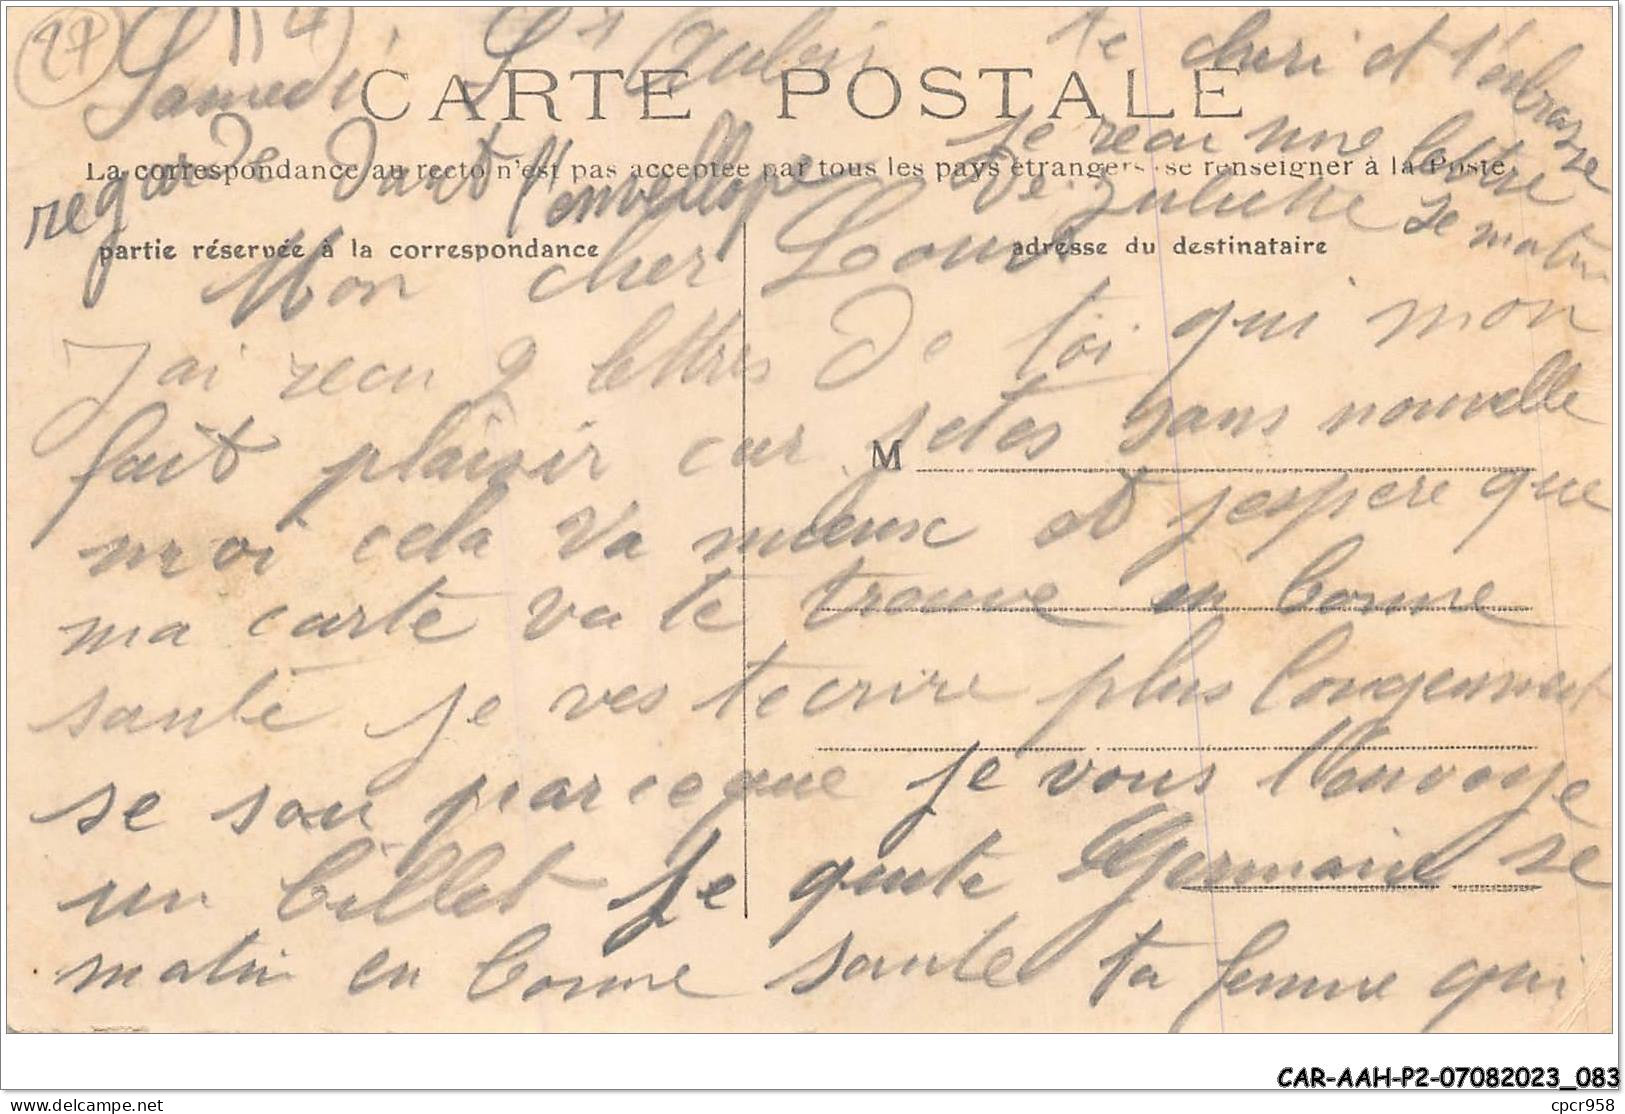 27
114
Samedi St Aubin
CARTE POSTALE
La correspondance au recto n'est pas acceptée par tous les pays étrangers se renseigner à la Poste
regarde dant l'envellope
partie réservée à la correspondance
adresse du destinataire
Mon cher Louis
J'ai recu 2 lettres de toi qui mon
fait plaisir car jetes sans nouvelle
M
moi cela va mieux et jespere que
ma carte va te trouve en bonne
santé je ves tecrire plus longement
se soir parceque je vous l'envoye
un billet je quite Germaine se
matin en bonne sante ta femme qui
te cheri et t'enbrasse
je recu une lettre
de Juliette se matin
CAR-AAH-P2-07082023_083
delcampe.net
cpcr958